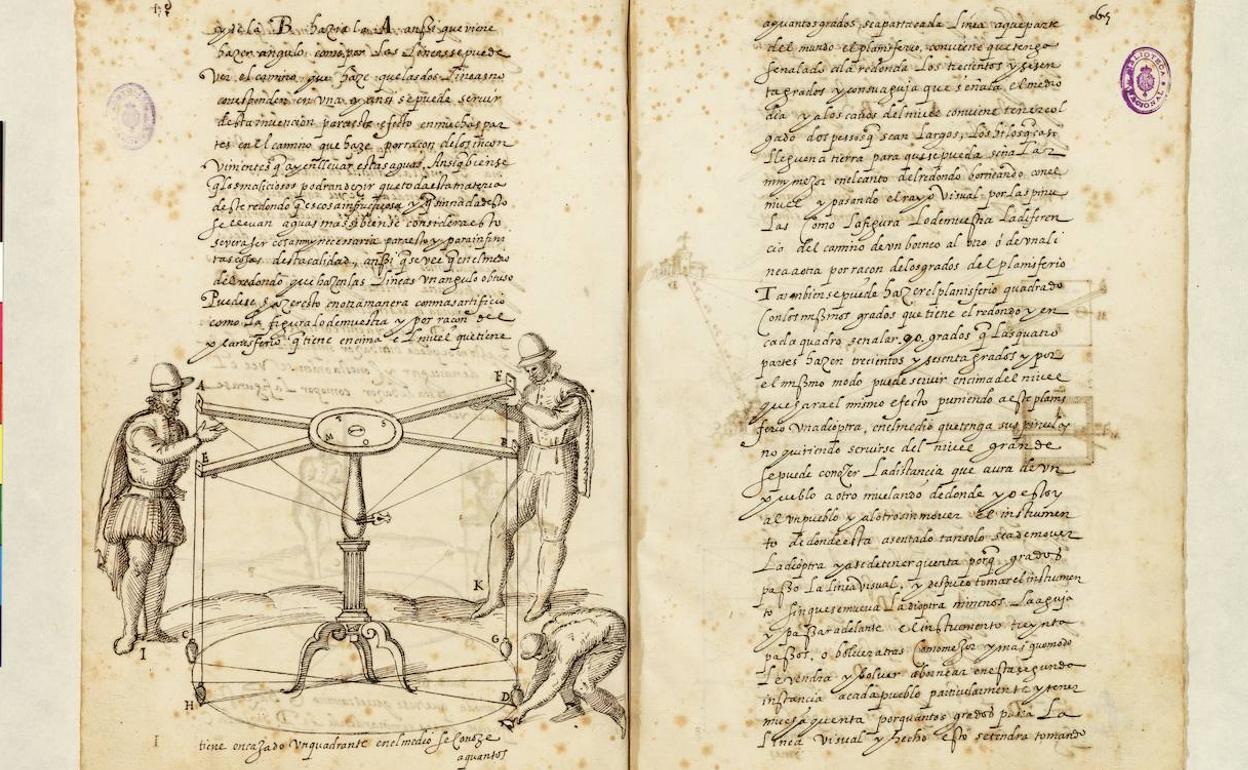 y de la B hazia la A ansi que viene
hazer angulo como por las lineas se puede
Ver el camino que haze que las dos lineas no
corresponden en una, y ansi se puede servir
desta invencion para este efecto en muchas par
tes en el camino que haze por raçon de los incon
Vinientes q̃ ay en llevar estas aguas. Ansi q̃ bien se
q̃ los maliciosos podran dezir que toda esta materia
deste redondo q̃ es cosa infructuosa y q̃ sin nada desto
se llevan aguas mas si bien se considera esto
se vera ser cosa muy necessaria para esto y para infini
tas cosas desta calidad, ansi q̃ se vee q̃ en el medio
del redondo que hazen las lineas Un angulo obtuso
Puedese hazer esto en otra manera con mas artificio
como la figura lo demuestra y por raçon del
q̃ tiene encima el nivel que tiene
A
F
E
B
M
T
S
O
K
C
G
I
H
D
tiene encaxado Un quadrante en el medio se Conoze
aquantos
65
aquantos grados, se aparta cada linea a que parte
del mundo el planisferio, conviene que tenga
señalado a la redonda los trecientos y sesen
ta grados y con su aguja que señala el medio
dia y a los cabos del nivel conviene tener col
gado dos pessos q̃ sean largos, los hilos q̃ casi
lleguen a tierra para que se pueda señalar
muy mejor en el canto del redondo borneando con el
nivel y pasando el rayo Visual por las pinu
las Como la figura lo demuestra la diferen
cia del camino de un borneo al otro ó de una li
nea a otra por raçon de los grados del planisferio
Tambien se puede hazer el planisferio quadrado
Con los mismos grados que tiene el redondo y en
cada quadro señalar .90. grados q̃ las quatro
partes hazen trecientos y sesenta grados y por
el mismo modo puede servir encima del nivel
que hara el mismo efecto puniendo a este planis
ferio Una dioptra, en el medio que tenga sus pinulas
no quiriendo servirse del nivel grande
se puede conozer la distancia que aura de un
pueblo a otro nivelando de donde yo estoy
al un pueblo y al otro sin mover El instrumen
to de donde esta asentado tan solo se a de mover
la dioptra y a se de tener quenta porq̃ grados
passo la linea visual, y despues tomar el instrumen
to sin que se mueva la dioptra ni menos la aguja
y passar adelante el instrumento treynta
passos, o bolver atras Como mejor y mas a quomodo
le vendra y bolver a bornear en esta segunda
instancia a cada pueblo particularmente y tener
muestra quenta por quantos grados passa la
linea visual y hecho esto se tendra tomando